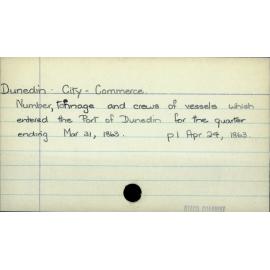 Dunedin - City - Commerce.
Number, tonnage and crews of vessels which
entered the Port of Dunedin for the quarter
ending Mar 31, 1863. p1 Apr 24, 1863.